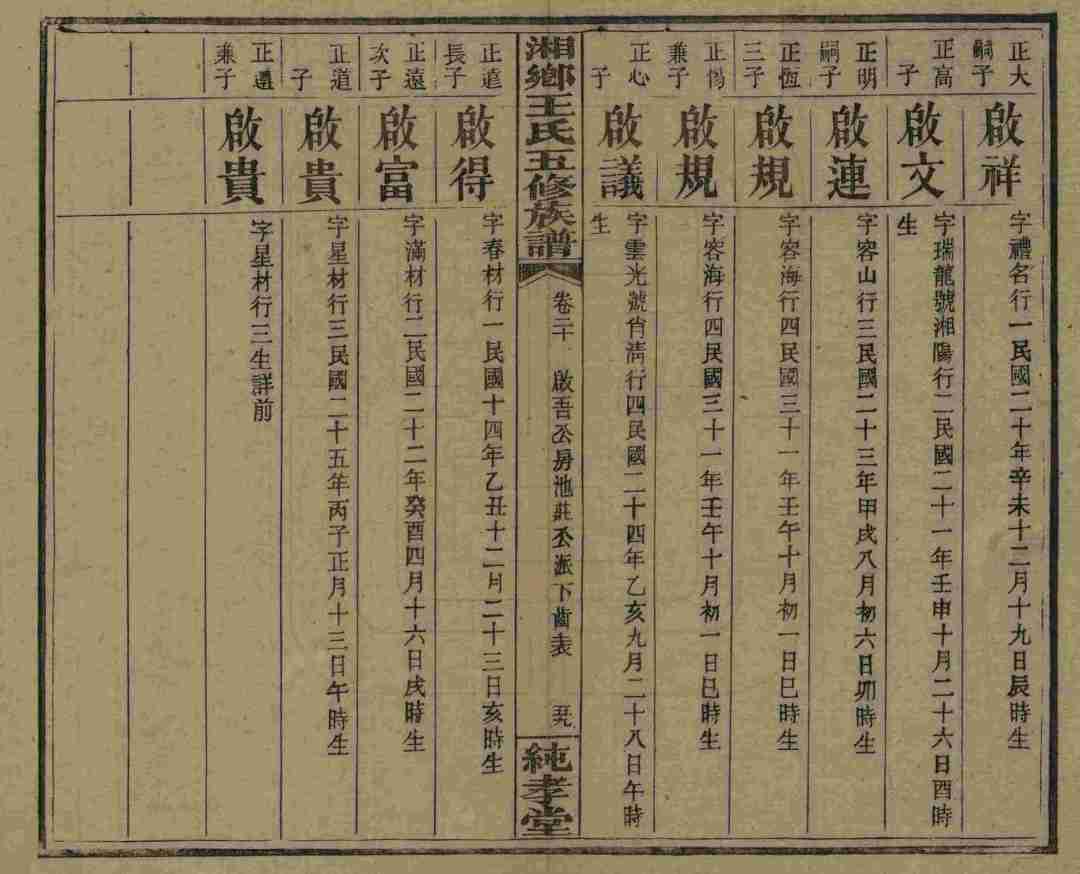 正大
嗣子
啟祥
字禮名行一民國二十年辛未十二月十九日辰時生
正高
子
啟文
字瑞龍號湘陽行二民國二十一年壬申十月二十六日酉時
生
正明
嗣子
啟連
字容山行三民國二十三年甲戌八月初六日卯時生
正恆
三子
啟規
字容海行四民國三十一年壬午十月初一日巳時生
正
兼子
啟規
字容海行四民國三十一年壬午十月初一日巳時生
正心
子
啟議
字雲光號肖清行四民國二十四年乙亥九月二十八日午時
生
湘鄉王氏五修族譜
卷二十
啟吾公房池莊公派下齒表
純孝堂
正遠
長子
啟得
字春材行一民國十四年乙丑十二月二十三日亥時生
正遠
次子
啟富
字滿材行二民國二十二年癸酉四月十六日戌時生
正道
子
啟貴
字星材行三民國二十五年丙子正月十三日午時生
正還
兼子
啟貴
字星材行三生詳前